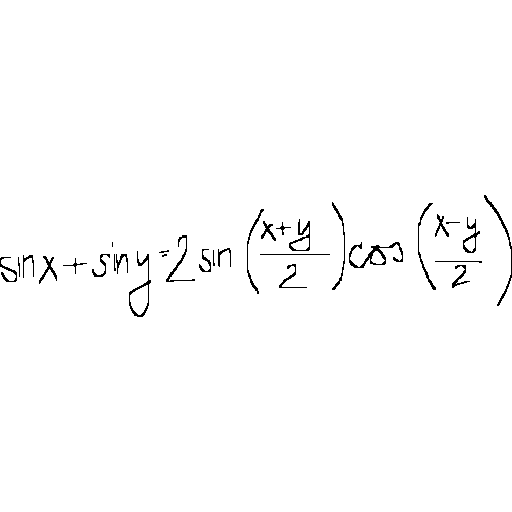 sin x + sin y = 2 sin ((x+y)/2) cos ((x-y)/2)